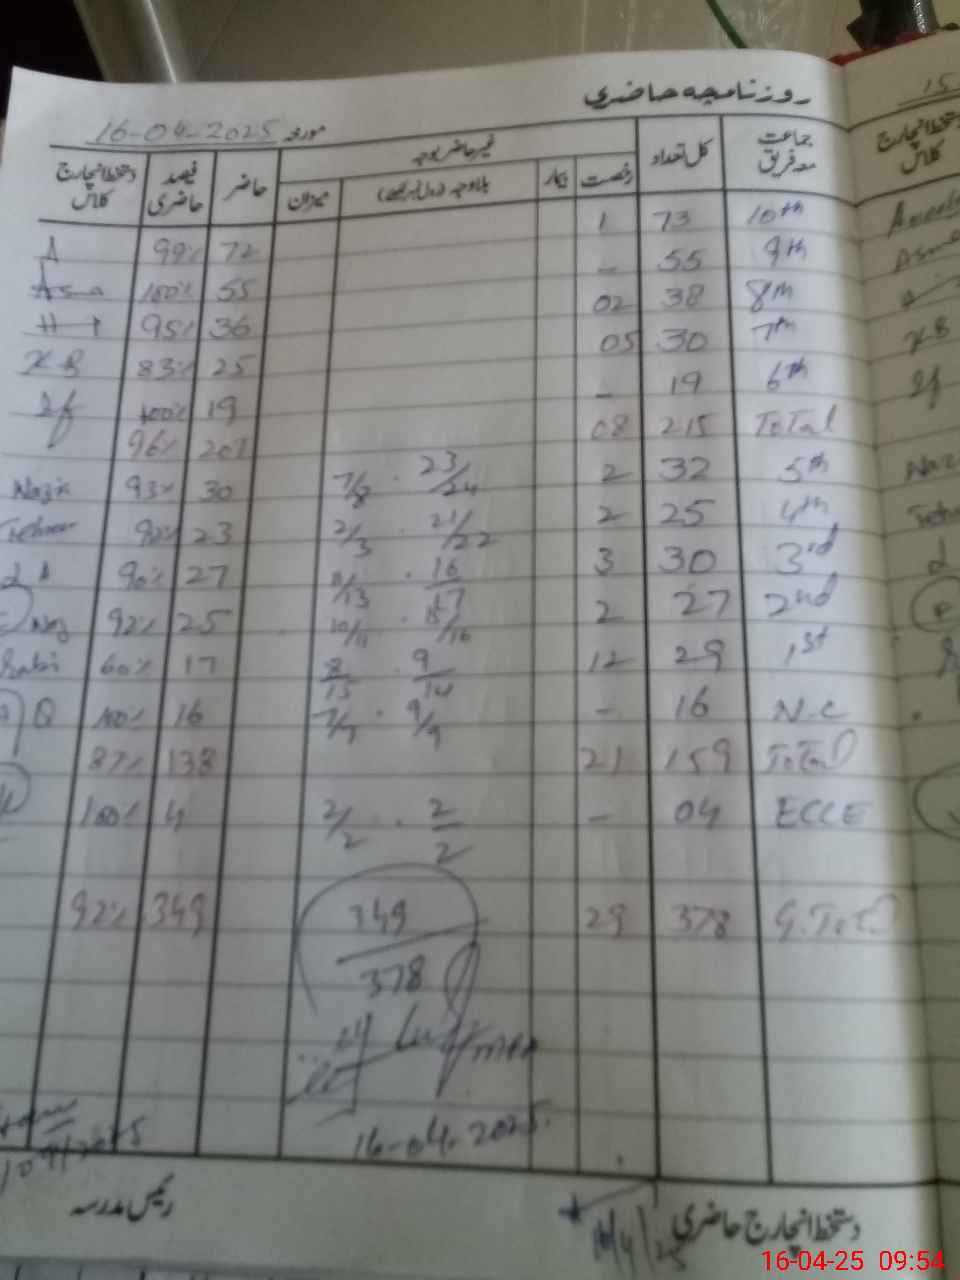 روزنامچہ حاضری
مورخہ 16-04-2025
جماعت معہ فریق | کل تعداد | غیر حاضر بوجہ | حاضر | فیصد حاضری | دستخط انچارج کلاس
رخصت | بیمار | بلاوجہ | میزان
10th 73 1 72 99% A
9th 55 - 55 100% Asma
8th 38 02 36 95%
7th 30 05 25 83%
6th 19 - 19 100%
Total 215 08 207 96%
5th 32 2 7/8 . 23/24 30 93%
4th 25 2 2/3 . 21/22 23 92%
3rd 30 3 11/13 . 16/17 27 90%
2nd 27 2 10/11 . 15/16 25 92% Naz
1st 29 12 8/15 . 9/14 17 60%
N.C 16 - 7/7 . 9/9 16 100% Q
Total 159 21 138 87%
ECCE 04 - 2/2 . 2/2 4 100%
G.Tot. 378 29 349 92%
349
378
16-04-2025
دستخط انچارج حاضری
رئیس مدرسہ
15
دستخط انچارج کلاس
Asma
16-04-25 09:54